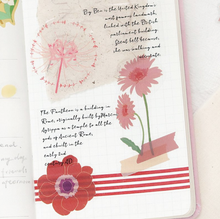 Big Ben is the United Kingdom's
most famous landmark,
linked with the British
parliament building
Great bell because,
she was walking and
The Pantheon is a building in
Rome, originally built by
Agrippa as a temple to all the
gods of Ancient Rome,
and rebuilt in
the early 2nd
century AD